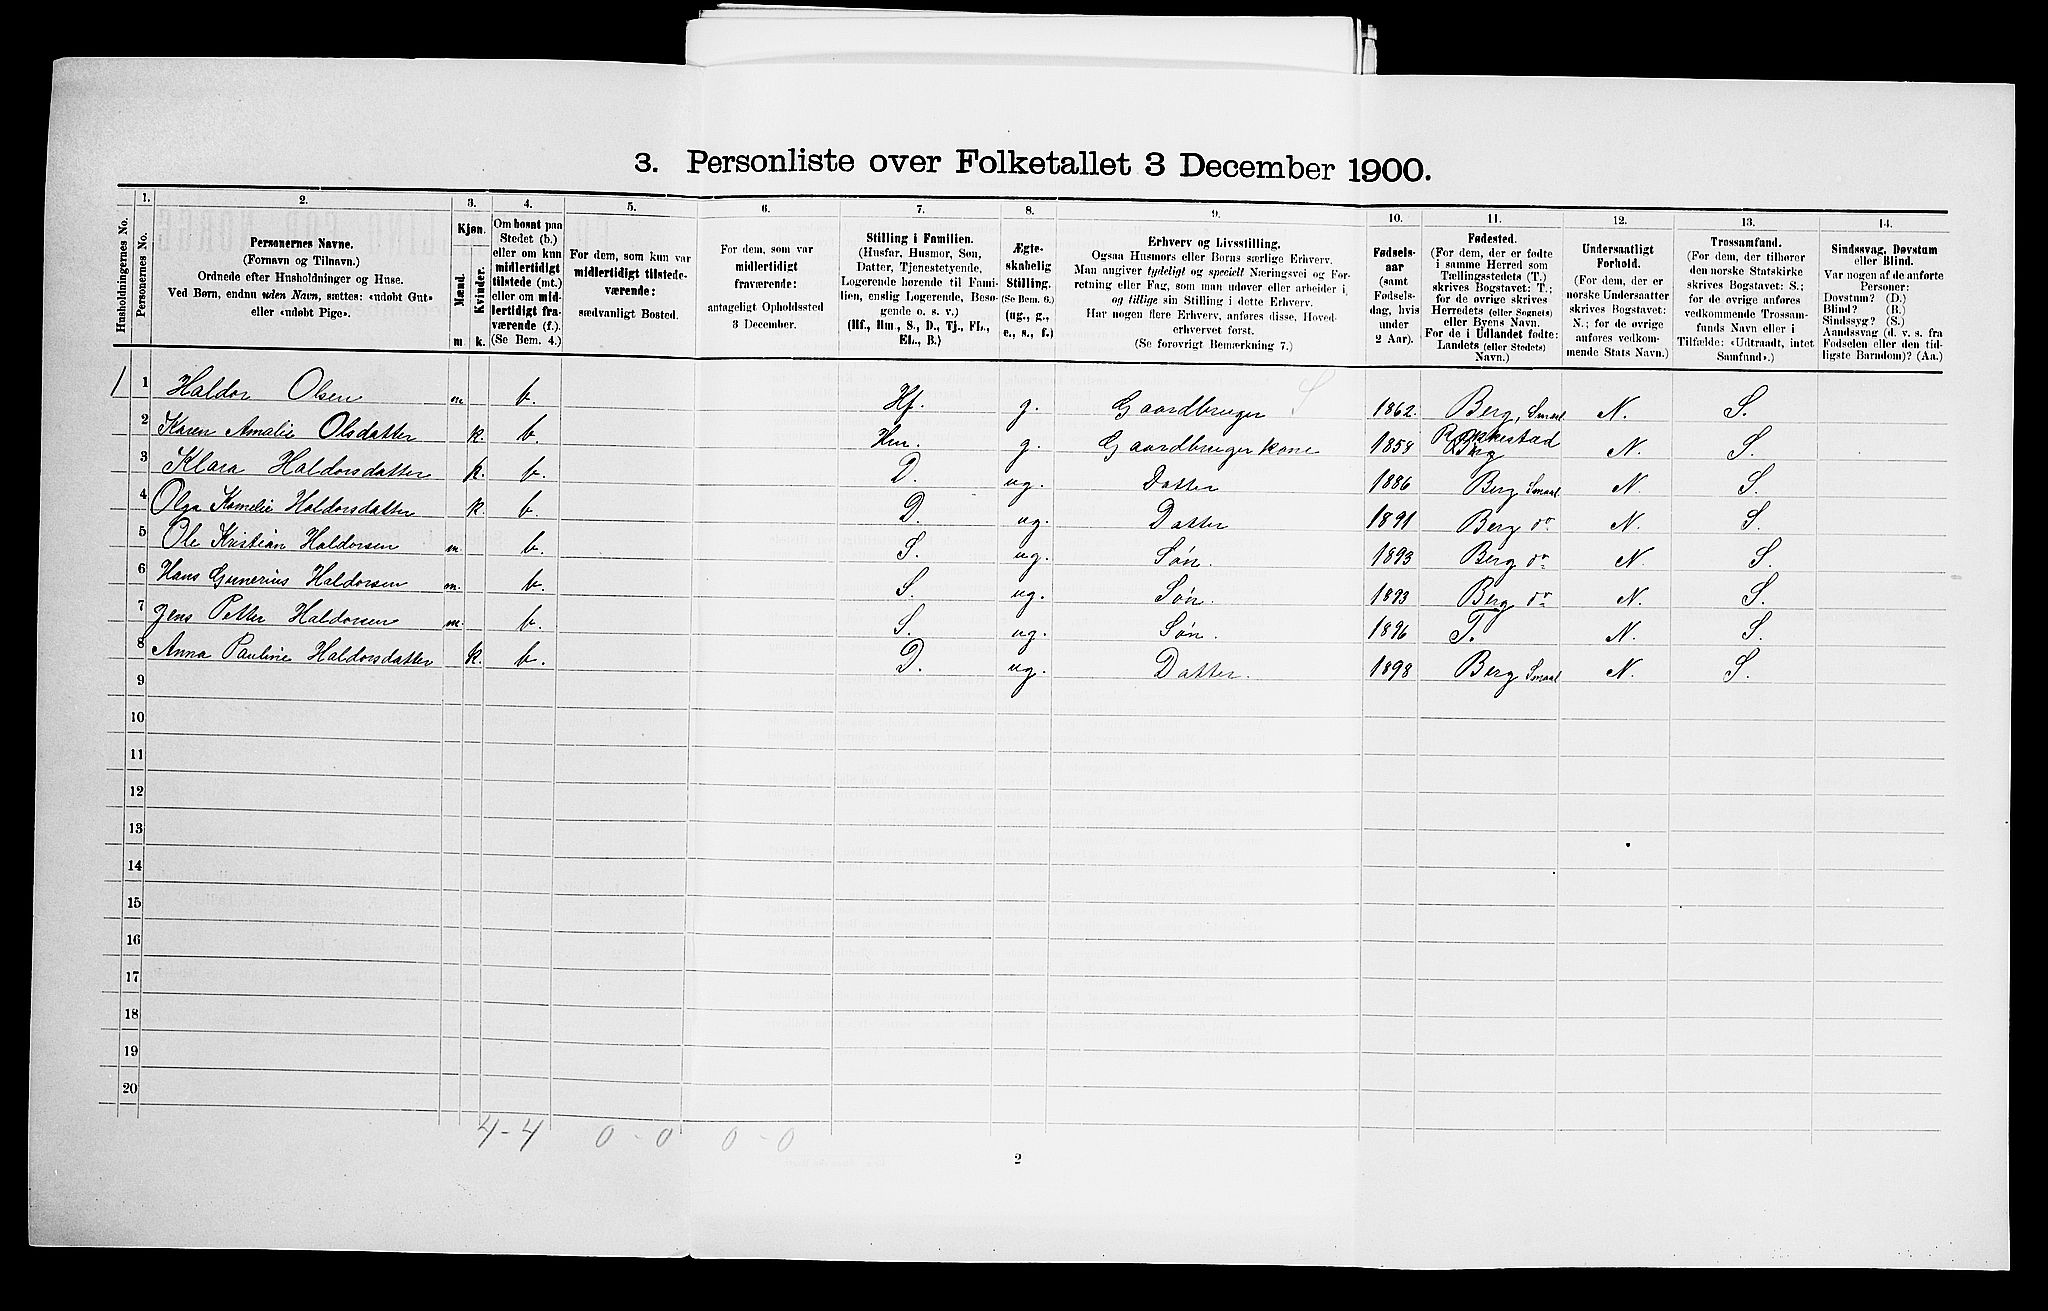 3. Personliste over Folketallet 3 December 1900.
Husholdningernes No.
1. Personernes No.
2. Personernes Navne. (Fornavn og Tilnavn.) Ordnede efter Husholdninger og Huse. Ved Børn, endnu uden Navn, sættes: «udøbt Gut» eller «udøbt Pige».
3. Kjøn. Mænd. m. Kvinder. k.
4. Om bosat paa Stedet (b.) eller om kun midlertidigt tilstede (mt.) eller om midlertidigt fraværende (f.). (Se Bem. 4.)
5. For dem, som kun var midlertidigt tilstedeværende: sædvanligt Bosted.
6. For dem, som var midlertidigt fraværende: antageligt Opholdssted 3 December.
7. Stilling i Familien. (Husfar, Husmor, Søn, Datter, Tjenestetyende, Logerende hørende til Familien, enslig Logerende, Besøgende o. s. v.) (Hf., Hm., S., D., Tj., FL., EL., B.)
8. Ægteskabelig Stilling. (Se Bem. 6.) (ug., g., e., s., f.)
9. Erhverv og Livsstilling. Ogsaa Husmors eller Børns særlige Erhverv. Man angiver tydeligt og specielt Næringsvei og Forretning eller Fag, som man udøver eller arbeider i, og tillige sin Stilling i dette Erhverv. Har nogen flere Erhverv, anføres disse, Hovederhvervet først. (Se forøvrigt Bemærkning 7.)
10. Fødselsaar (samt Fødselsdag, hvis under 2 Aar).
11. Fødested. (For dem, der er fødte i samme Herred som Tællingsstedets (T.) skrives Bogstavet: T.; for de øvrige skrives Herredets (eller Sognets) eller Byens Navn. For de i Udlandet fødte: Landets (eller Stedets) Navn.)
12. Undersaatligt Forhold. (For dem, der er norske Undersaatter skrives Bogstavet: N.; for de øvrige anføres vedkommende Stats Navn.)
13. Trossamfund. (For dem, der tilhører den norske Statskirke skrives Bogstavet: S.; for de øvrige anføres vedkommende Trossamfunds Navn eller i Tilfælde: «Udtraadt, intet Samfund».)
14. Sindssvag, Døvstum eller Blind. Var nogen af de anførte Personer: Døvstum? (D.) Blind? (B.) Sindssyg? (S.) Aandssvag (d. v. s. fra Fødselen eller den tidligste Barndom)? (Aa.)
1 1 Haldor Olsen m. b. Hf. g. Gaardbruger S 1862. Berg, Smaal N. S.
2 Karen Amalie Olsdatter k. b. Hm. g. Gaardbrugerkone 1858 Rakkestad Berg N. S.
3 Klara Haldorsdatter k. b. D. ug. Datter 1886 Berg Smaal N. S.
4 Olga Kamelie Haldorsdatter k. b. D. ug. Datter 1891 Berg do N. S.
5 Ole Kristian Haldorsen m. b. S. ug. Søn. 1893 Berg do N. S.
6 Hans Gunerius Haldorsen m. b. S. ug. Søn. 1893 Berg do N. S.
7 Jens Petter Haldorsen m. b. S. ug. Søn. 1896 T. N. S.
8 Anna Pauline Haldorsdatter k. b. D. ug. Datter. 1898 Berg Smaal N. S.
9
10
11
12
13
14
15
16
17
18
19
20
4 - 4 0 - 0 0 - 0
2